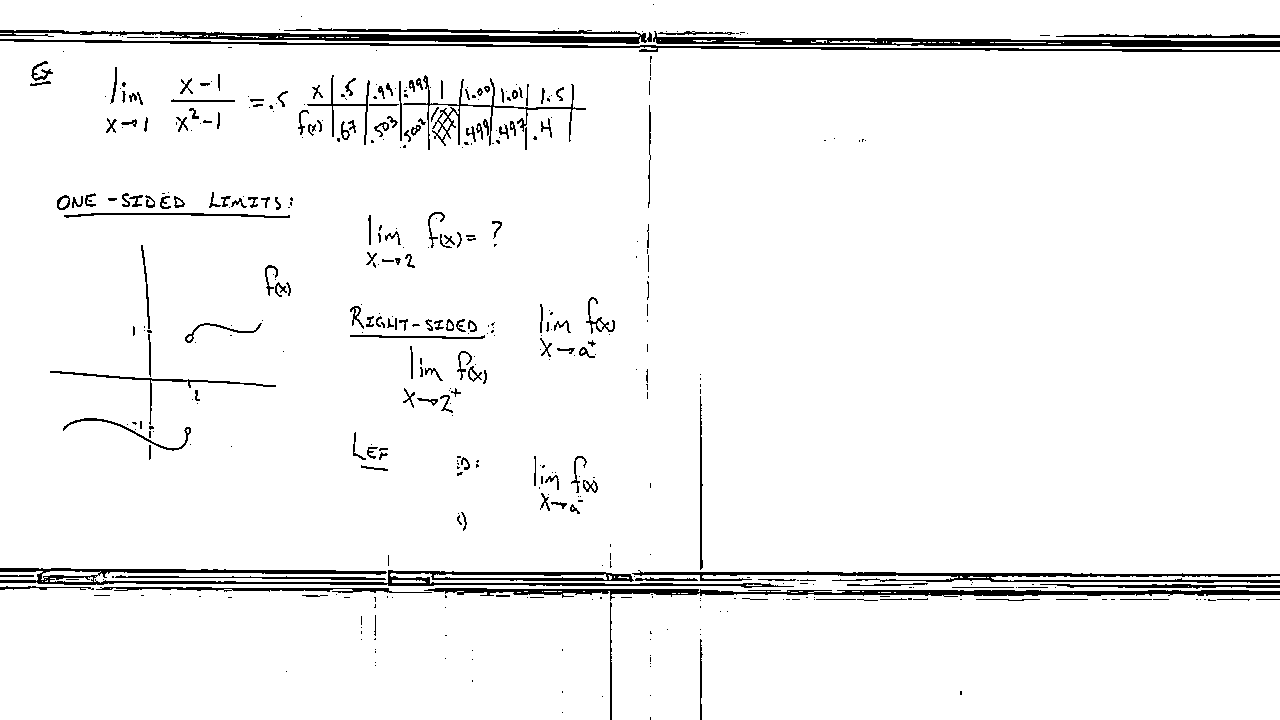 Ex lim x→1 x-1 / x²-1 = .5
x | .5 | .99 | .999 | 1 | 1.001 | 1.01 | 1.5
f(x) | .67 | .503 | .5002 | | .499 | .497 | .4
ONE-SIDED LIMITS:
lim x→2 f(x) = ?
f(x)
1
2
-1
RIGHT-SIDED: lim x→a⁺ f(x)
lim x→2⁺ f(x)
LEF D: lim x→a⁻ f(x)